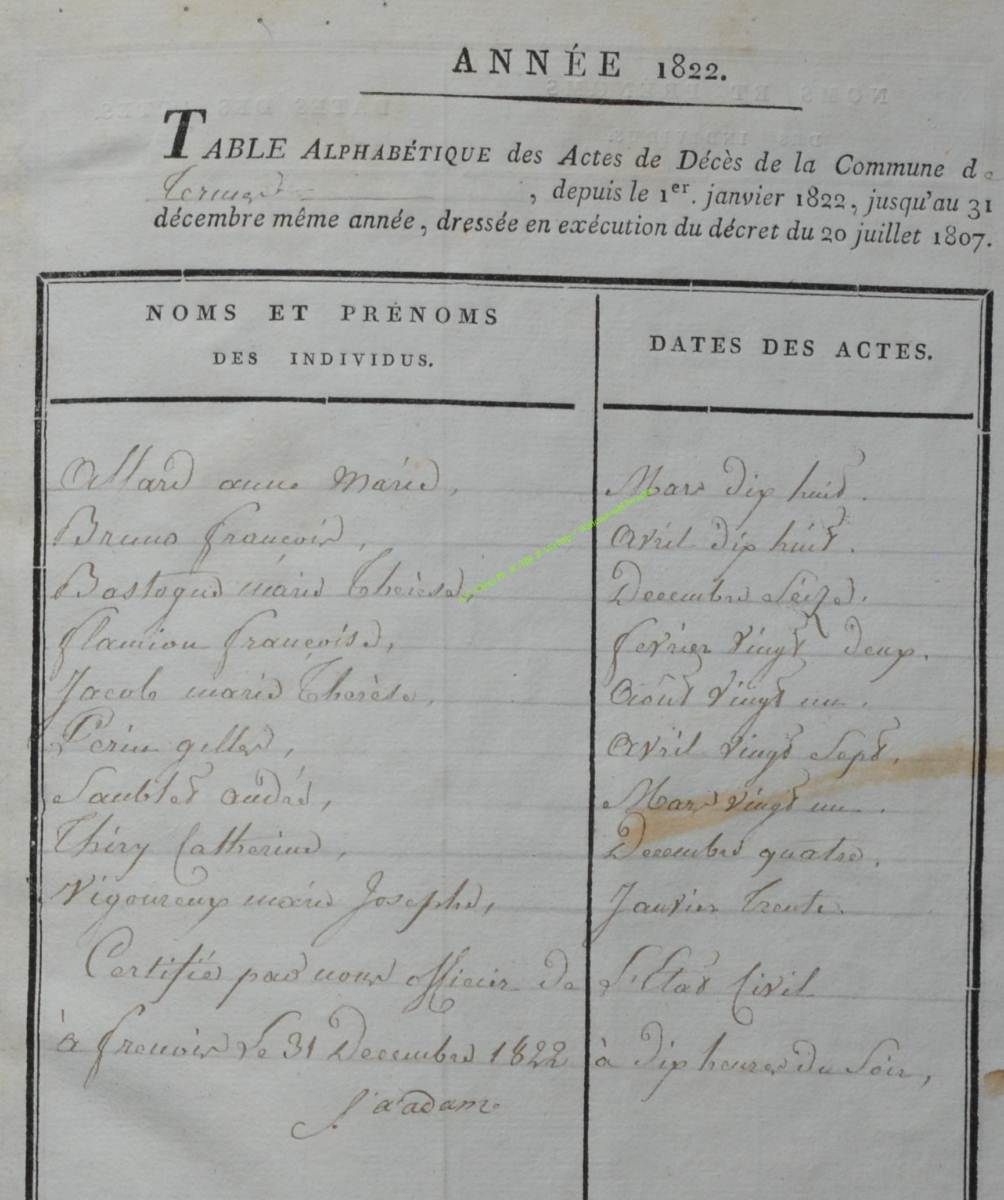 ANNÉE 1822.
TABLE ALPHABÉTIQUE des Actes de Décès de la Commune de
Termes, depuis le 1er. janvier 1822, jusqu'au 31
décembre même année, dressée en exécution du décret du 20 juillet 1807.
NOMS ET PRÉNOMS
DES INDIVIDUS.
DATES DES ACTES.
Allard anne marie, Mars dix huit.
Bruno françois, avril dix huit.
Bastogne marie Therèse, Decembre Seize.
flamion françoise, fevrier vingt deux.
Jacob marie Therèse, août vingt un.
Perin gilles, avril vingt Sept.
Saublet andré, Mars vingt un.
Thiry Catherine, Decembre quatre.
Vigoureux marie Josephe, Janvier trente.
Certifié par nous officier de L'Etat Civil
à frenois Le 31 Decembre 1822 à dix heures du Soir,
adam